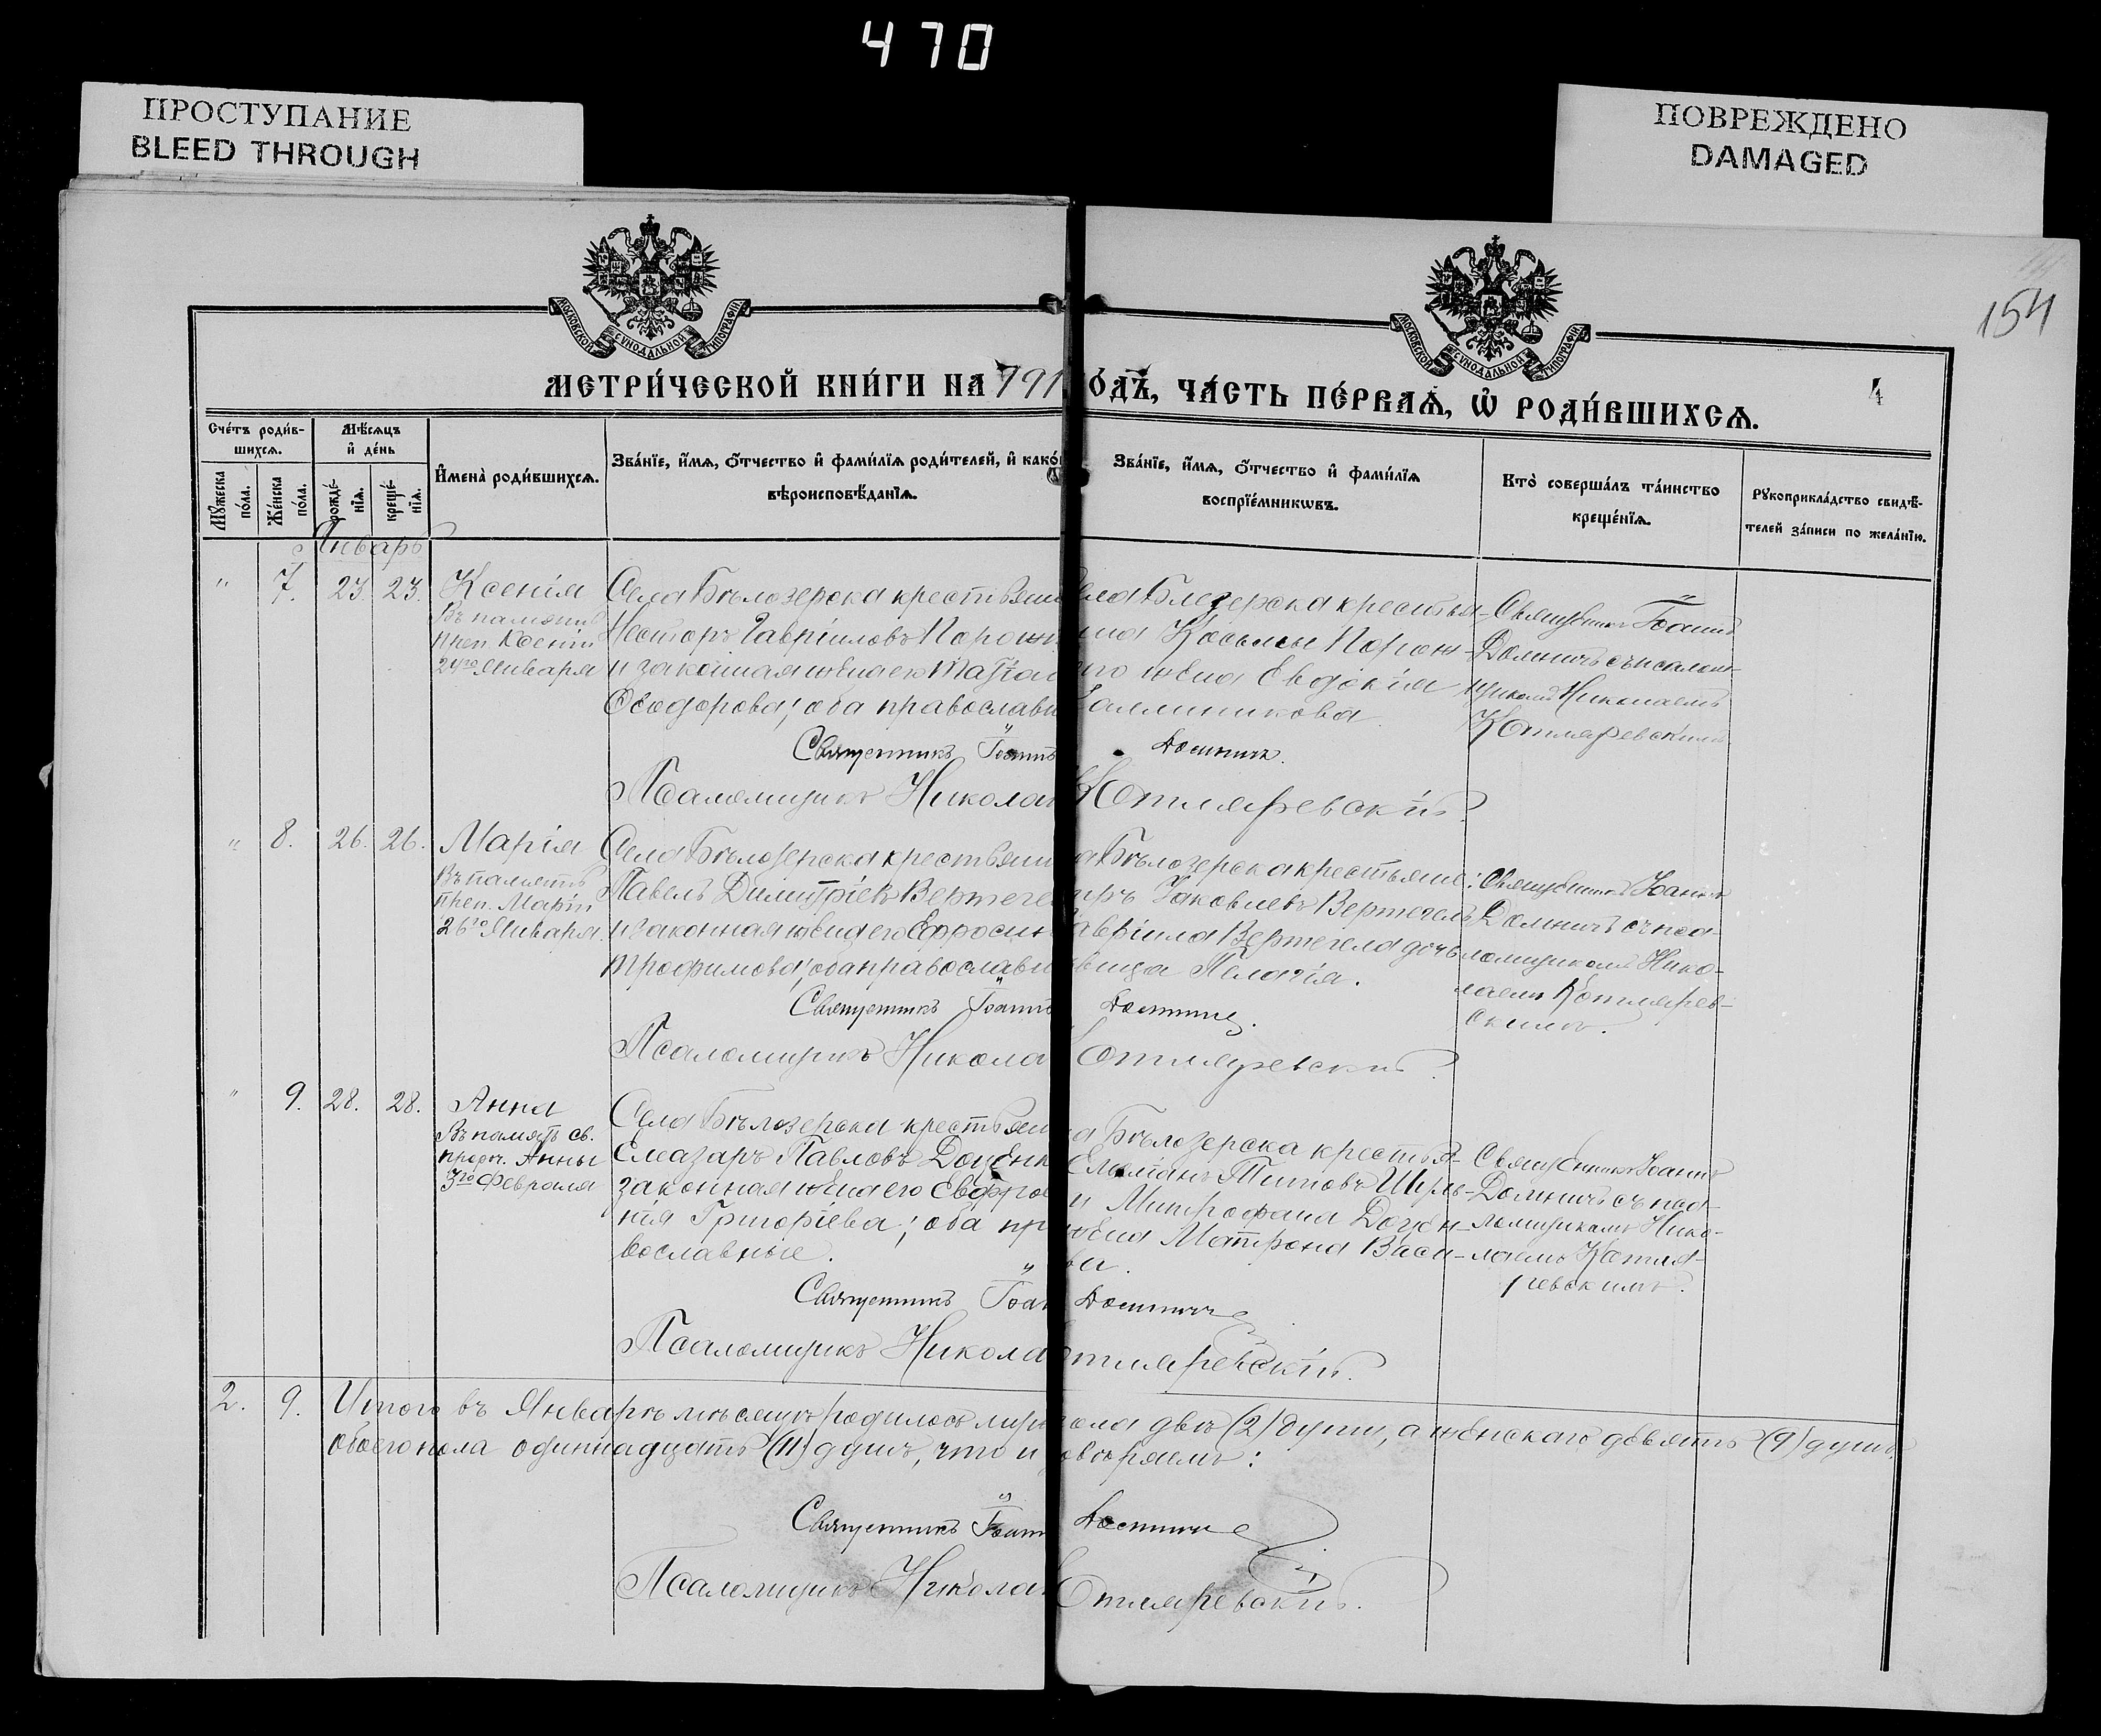 470
ПРОСТУПАНИЕ
BLEED THROUGH
ПОВРЕЖДЕНО
DAMAGED
154
МОСКОВСКОЙ СѴНОДАЛЬНОЙ ТИПОГРАФІИ
МОСКОВСКОЙ СѴНОДАЛЬНОЙ ТИПОГРАФІИ
МЕТРИ́ЧЕСКОЙ КНИ́ГИ НА 191
О́ДЪ, ЧА́СТЬ ПЕ́РВАѦ, Ѡ҆ РОДИ́ВШИХСѦ.
4
Сче́тъ роди́в-
шихсѧ.
Мѣ́сѧцъ
и҆ де́нь
Мꙋ́жеска
по́ла.
Же́нска
по́ла.
рожде́-
нїѧ.
креще́-
нїѧ.
И҆мена̀ роди́вшихсѧ.
Зва́нїе, и҆́мѧ, ѻ҆́тчество и҆ фами́лїѧ роди́телей, и҆ како́
вѣроисповѣ́данїѧ.
Зва́нїе, и҆́мѧ, ѻ҆́тчество и҆ фами́лїѧ
воспрїе́мникѡвъ.
Кто̀ соверша́лъ та́инство
креще́нїѧ.
Рꙋкоприкла́дство свидѣ́-
телей за́писи по жела́нїю.
Январь
" 7. 23. 23. Ксенія
Въ память
Преп. Ксеніи
24го Января
Села Бѣлозерска крестьян
Несторъ Гавріиловъ Порохн
и законная жена его
Ѳеодорова; оба православн
ела Бѣлозерска крестья-
Космы Порохн-
его жена Евдокія
Каллиникова
Священникъ Іоаннъ
Домничъ съ псалом-
щикомъ Николаемъ
Котляревскимъ
Священникъ Іоаннъ Домничъ.
Псаломщикъ Никола Котляревскій.
" 8. 26. 26. Марія
Въ память
преп. Маріи
26го Января.
Села Бѣлозерска крестьян
Павелъ Димитріевъ Вертеге
и законная жена его Ефросин
Трофимова; оба православн
а Бѣлозерска крестьяне:
Яковлевъ Вертегелъ
Гавріила Вертегела дочь
вица Пелагія.
Священникъ Іоаннъ
Домничъ съ пса-
ломщикомъ Нико-
лаемъ Котлярев-
скимъ.
Священникъ Іоаннъ Домничъ.
Псаломщикъ Никола Котляревскій
" 9. 28. 28. Анна
Въ память св.
прор. Анны
3го Февраля
Села Бѣлозерска крестьян
Елеазаръ Павловъ Доценк
законная жена его Евфро
нія Григоріева; оба пр
вославные.
а Бѣлозерска крестья-
Титовъ
и Митрофана Доцен-
жена Матрона Васи-
ва.
Священникъ Іоаннъ
Домничъ съ пса-
ломщикомъ Нико-
лаемъ Котля-
ревскимъ.
Священникъ Іоан Домничъ
Псаломщикъ Никола отляревскій.
2. 9. Итого въ Январѣ мѣсяцѣ родилось муж пола двѣ (2) души, а женскаго девять (9) душъ,
обоего пола одиннадцать (11) душъ, что и
Священникъ Іоанн Домничъ
Псаломщикъ Никола Котляревскій.